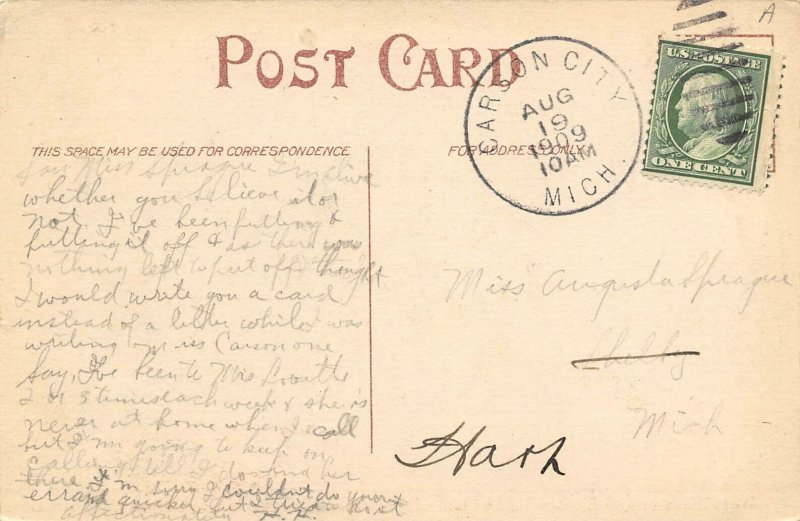 POST CARD
THIS SPACE MAY BE USED FOR CORRESPONDENCE
FOR ADDRESS ONLY
CARSON CITY
AUG
19
1909
10AM
MICH.
U.S. POSTAGE
ONE CENT
A
Say Miss Sprague I'm alive
whether you believe it or
not. I've been putting &
putting it off & as there was
nothing left to put off thought
I would write you a card
instead of a letter while I was
writing Miss Carson one
Say, I've been to Mrs
2 or 3 times each week & she is
never at home when I call
but I'm going to keep on
calling till I do find her
there & I'm sorry I couldn't do your
errand quicker but I tried a lot
affectionately
Miss Augusta Sprague
Shelby
Mich
Hart